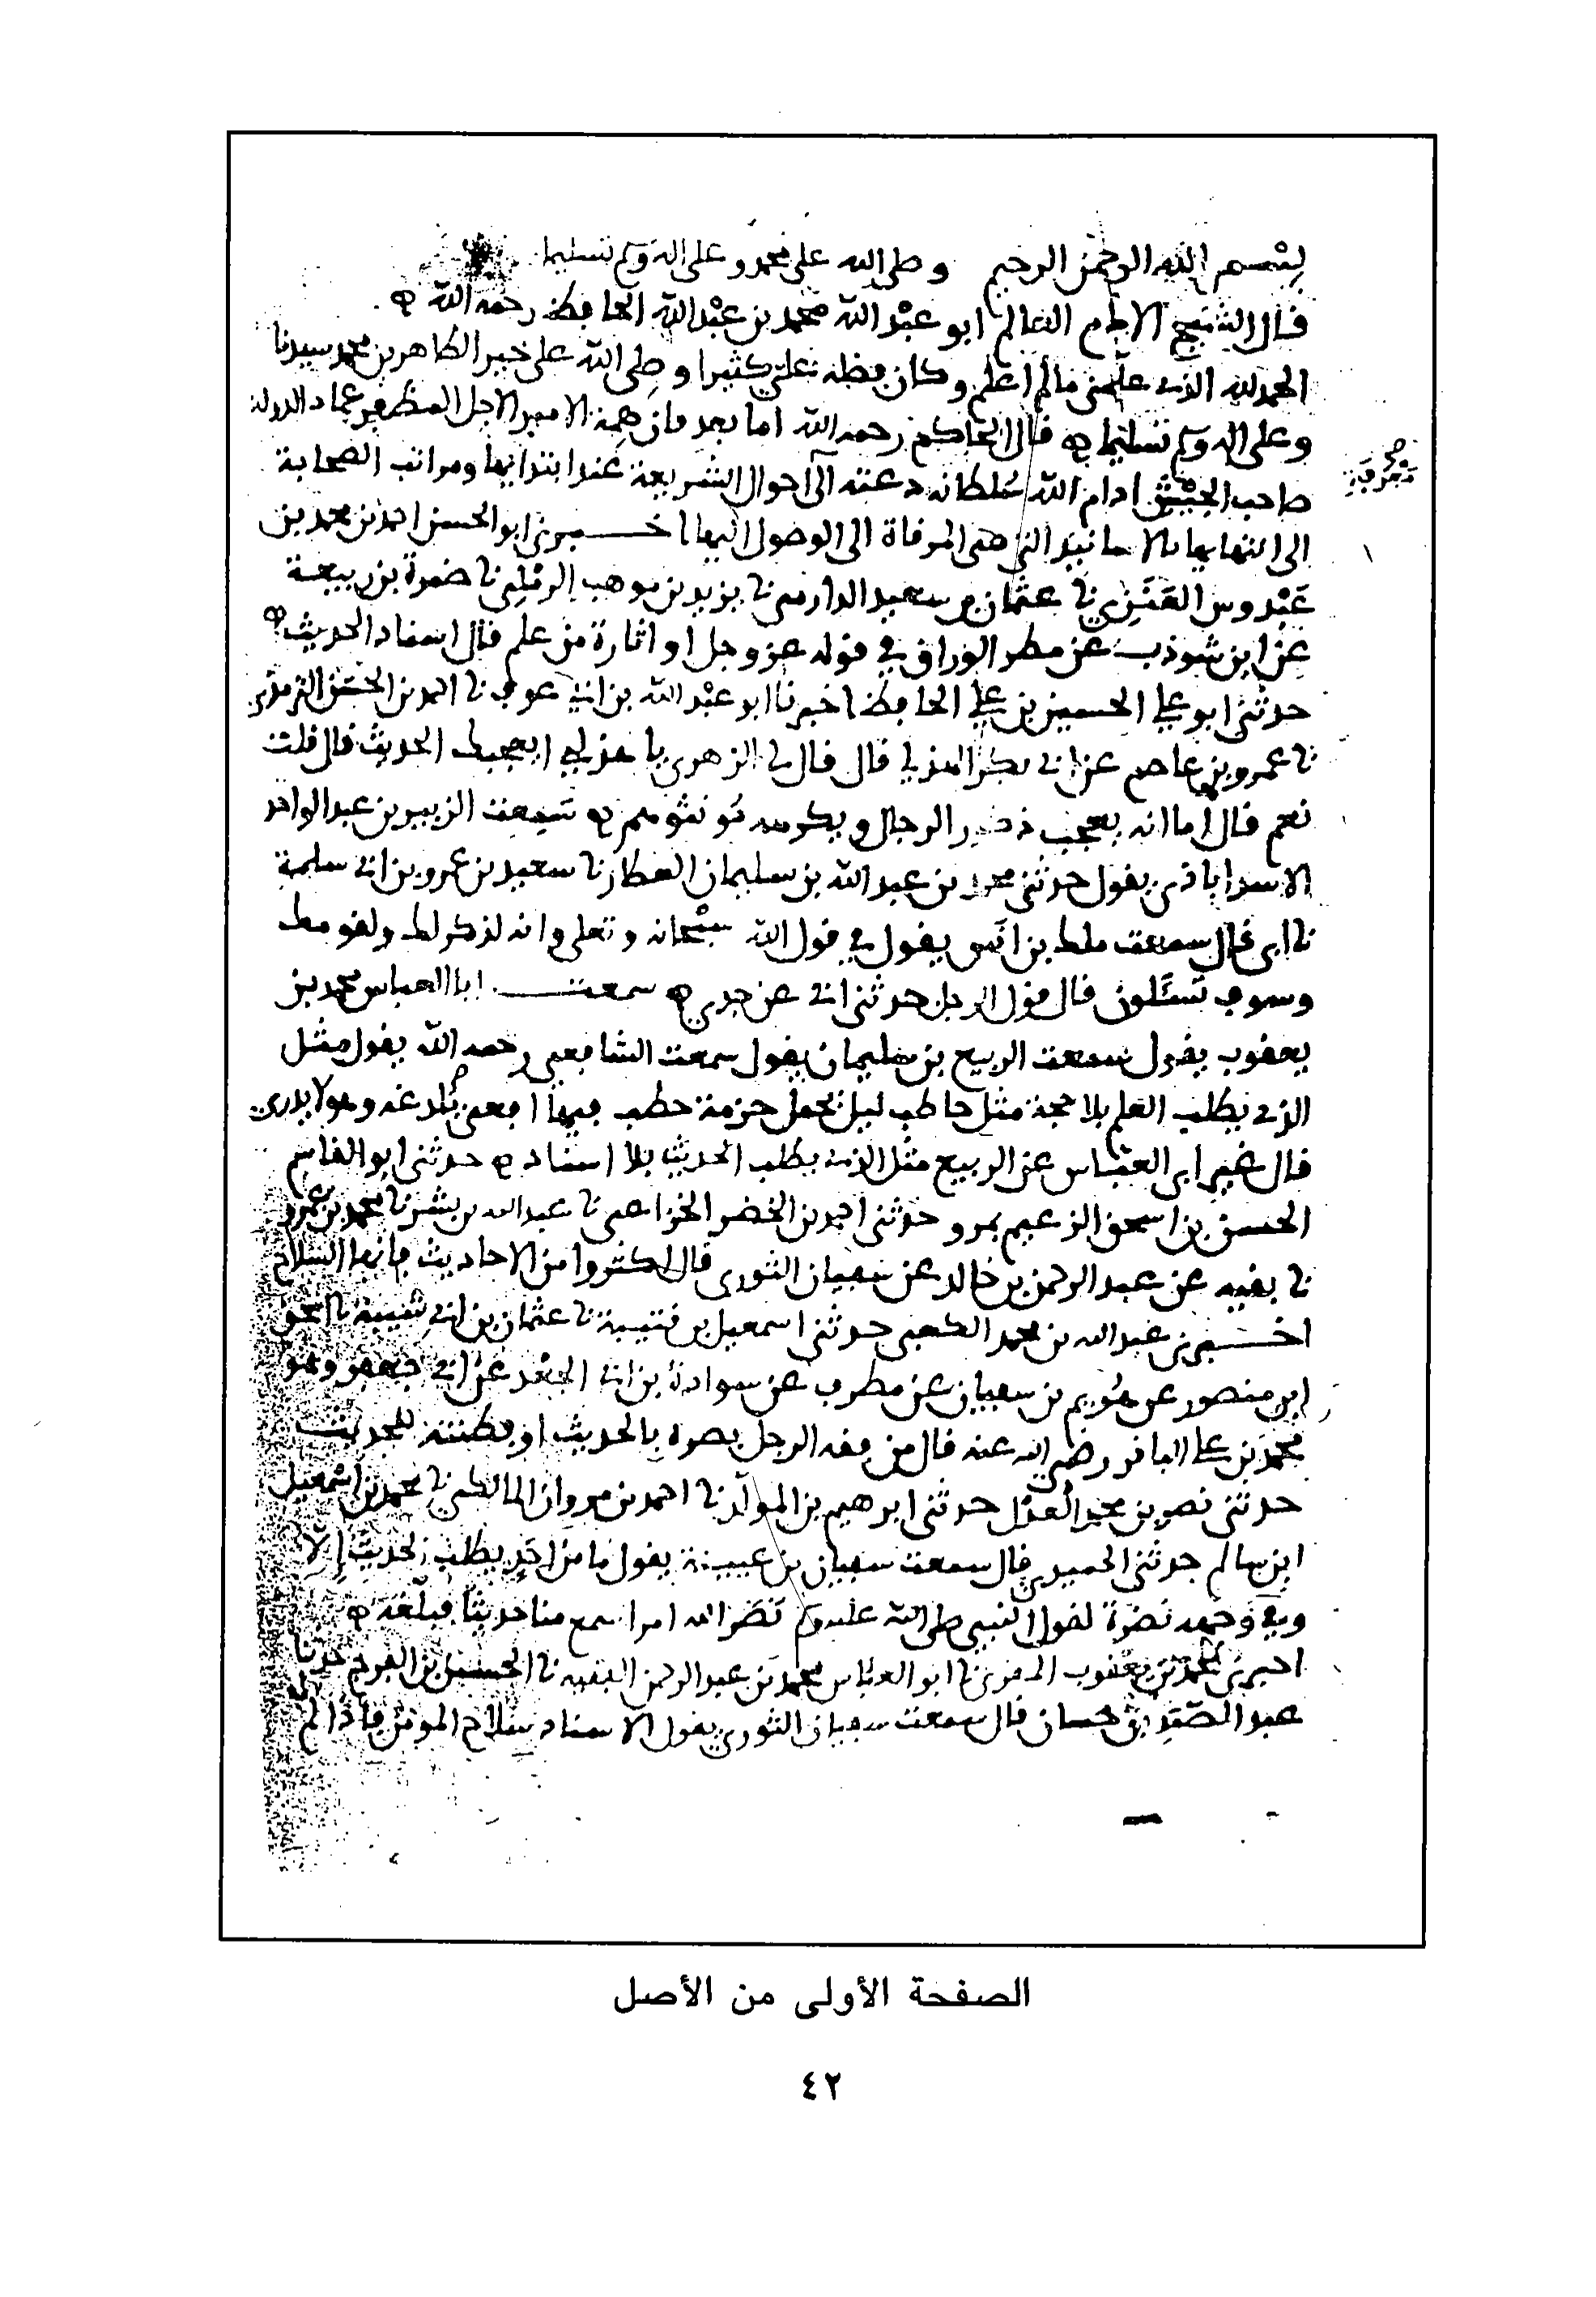 بسم الله الرحمن الرحيم وصلى الله على محمد وعلى اله وسلم تسليما
قال الشيخ الامام العالم ابو عبد الله محمد بن عبد الله الحافظ رحمه الله
الحمد لله الذي علمني ما لم اعلم وكان فضله علي كثيرا وصلى الله على خير الطاهرين محمد سيدنا
وعلى اله وسلم تسليما قال الحاكم رحمه الله اما بعد فان همة الامير الاجل المظفر عماد الدولة
صاحب الجيش ادام الله سلطانه دعته الى احوال الشريعة عند ابتدايها ومراتب الصحابة
الى انتهايها بالاسانيد التي هي المرقاة الى الوصول اليها اخبرني ابو الحسن احمد بن محمد بن
عبدوس العنزي نا عثمان بن سعيد الدارمي نا يزيد بن موهب الرملي نا ضمرة بن ربيعة
عن ابن شوذب عن مطر الوراق في قوله عز وجل او اثارة من علم قال اسناد الحديث
حدثني ابو علي الحسين بن علي الحافظ اخبرنا ابو عبد الله بن ابي عوف نا احمد بن الحسن الترمذي
نا عمرو بن عاصم عن ابي بكر الهذلي قال قال لي الزهري يا هذلي ايعجبك الحديث قال قلت
نعم قال اما انه يعجب ذكور الرجال ويكرهه مونثوهم سمعت الزبير بن عبد الواحد
الاسداباذي يقول حدثني محمد بن عبد الله بن سليمان العطار نا سعيد بن عمرو بن ابي سلمة
نا ابي قال سمعت ملك بن انس يقول في قول الله سبحانه وتعلى وانه لذكر لك ولقومك
وسوف تسئلون قال قول الرجل حدثني ابي عن جدي سمعت ابا العباس محمد بن
يعقوب يقول سمعت الربيع بن سليمان يقول سمعت الشافعي رحمه الله يقول مثل
الذي يطلب العلم بلا حجة مثل حاطب ليل يحمل حزمة حطب فيها افعى تلدغه وهو لا يدري
قال غير ابي العباس عن الربيع مثل الذي يطلب الحديث بلا اسناد حدثني ابو القاسم
الحسن بن اسحق الزعيم بمرو حدثني احمد بن الخضر الخزاعي نا عبد الله بن بشر نا محمد بن عمرو
نا بقيه عن عبد الرحمن بن خالد عن سفيان الثوري قال اكثروا من الاحاديث فانها السلاح
اخبرني عبد الله بن محمد الكعبي حدثني اسمعيل بن قتيبة نا عثمان بن ابي شيبة نا اسحق
ابن منصور عن هريم بن سفيان عن مطرف عن سوادة بن ابي الجعد عن ابي جعفر وهو
محمد بن علي الباقر رضي الله عنه قال من فقه الرجل بصره بالحديث او فطنته للحديث
حدثني نصر بن محمد العدل حدثني ابرهيم بن المولد نا احمد بن مروان المالكي نا محمد بن اسمعيل
ابن سالم حدثني الحميدي قال سمعت سفيان بن عيينة يقول ما من احد يطلب الحديث الا
وفي وجهه نضرة لقول النبي صلى الله عليه وسلم نضر الله امرا سمع منا حديثا فبلغه
اخبرني محمد بن يعقوب المقري نا ابو العباس محمد بن عبد الرحمن الفقيه نا الحسين بن الفرج حدثنا
عبد الصمد بن حسان قال سمعت سفيان الثوري يقول الاسناد سلاح المومن فاذا لم
الصفحة الأولى من الأصل
٤٢